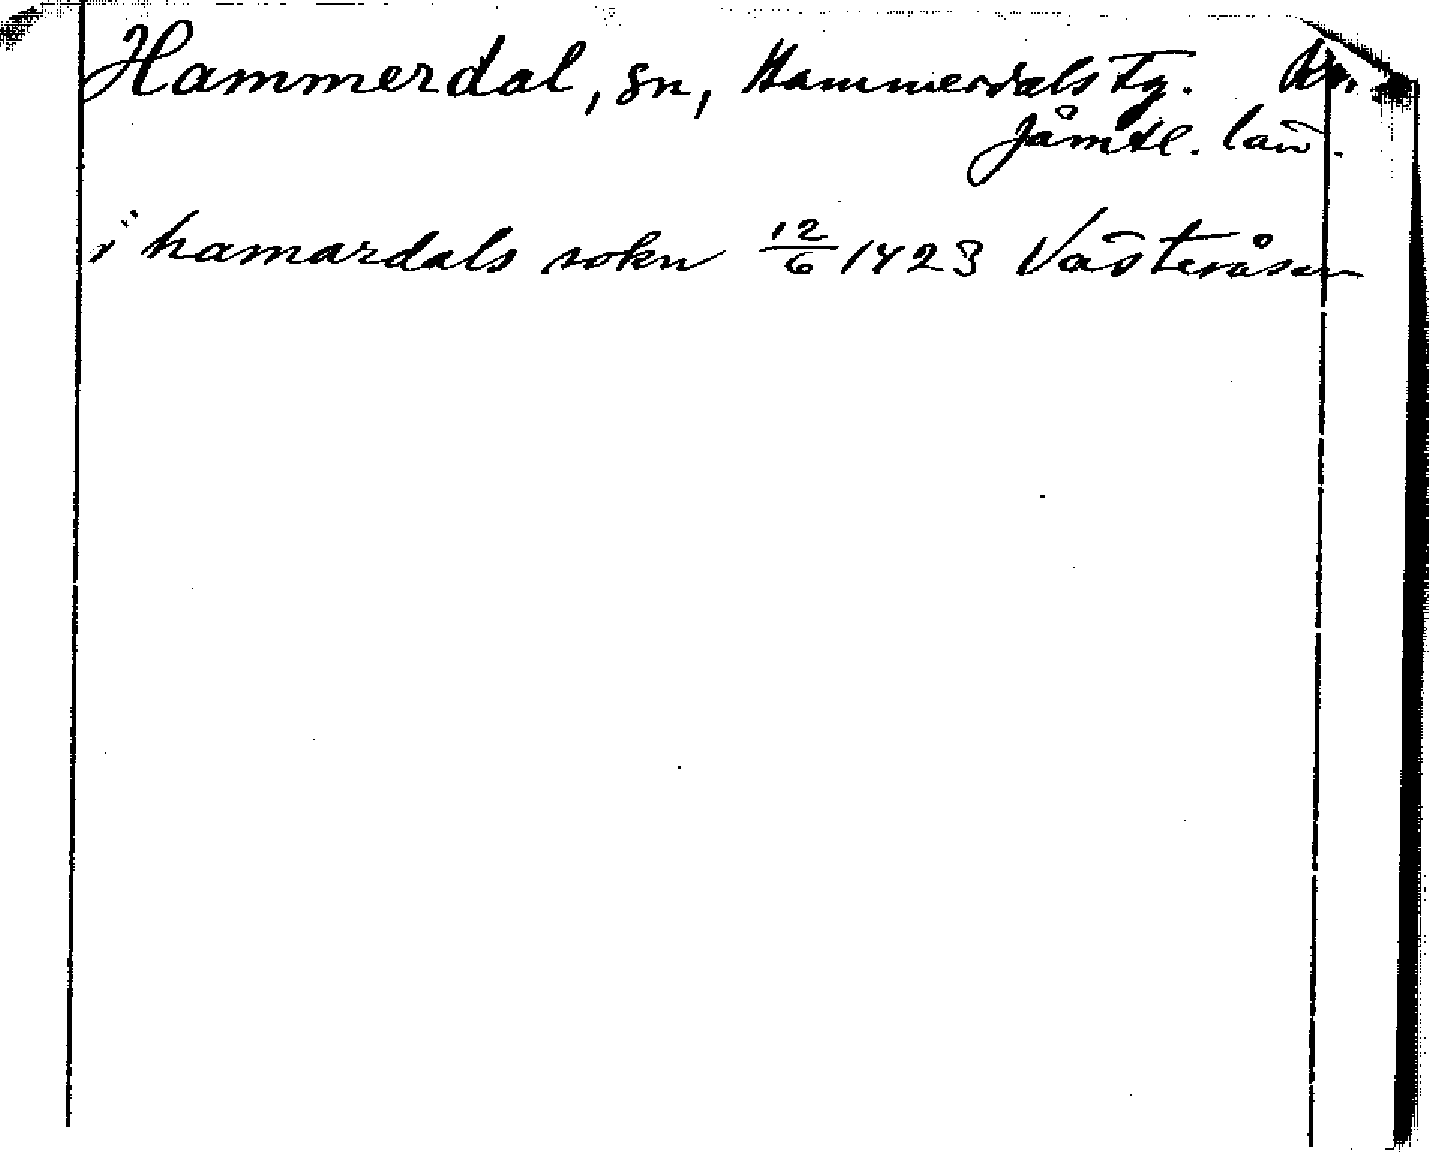 Hammerdal, sn, Hammerdals tg.
Jämtl. län.
i hamardals sokn 12/6 1423 Västeråsen